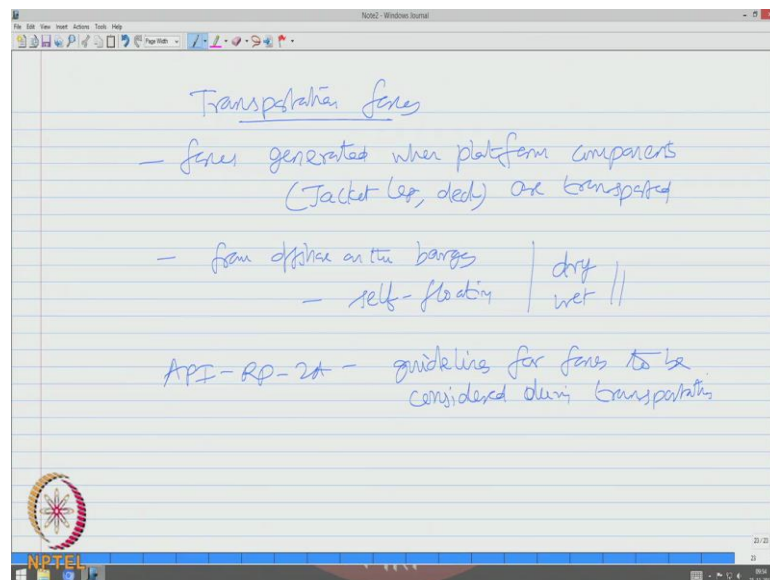 Note2 - Windows Journal
File Edit View Insert Actions Tools Help
Page Width
Transportation forces
- forces generated when platform components
(Jacket leg, deck) are transported
- from offshore on the barges
- self-floating
dry
wet
API-RP-2A - guidelines for forces to be
considered during transportation
NPTEL
23/23
23
09:54